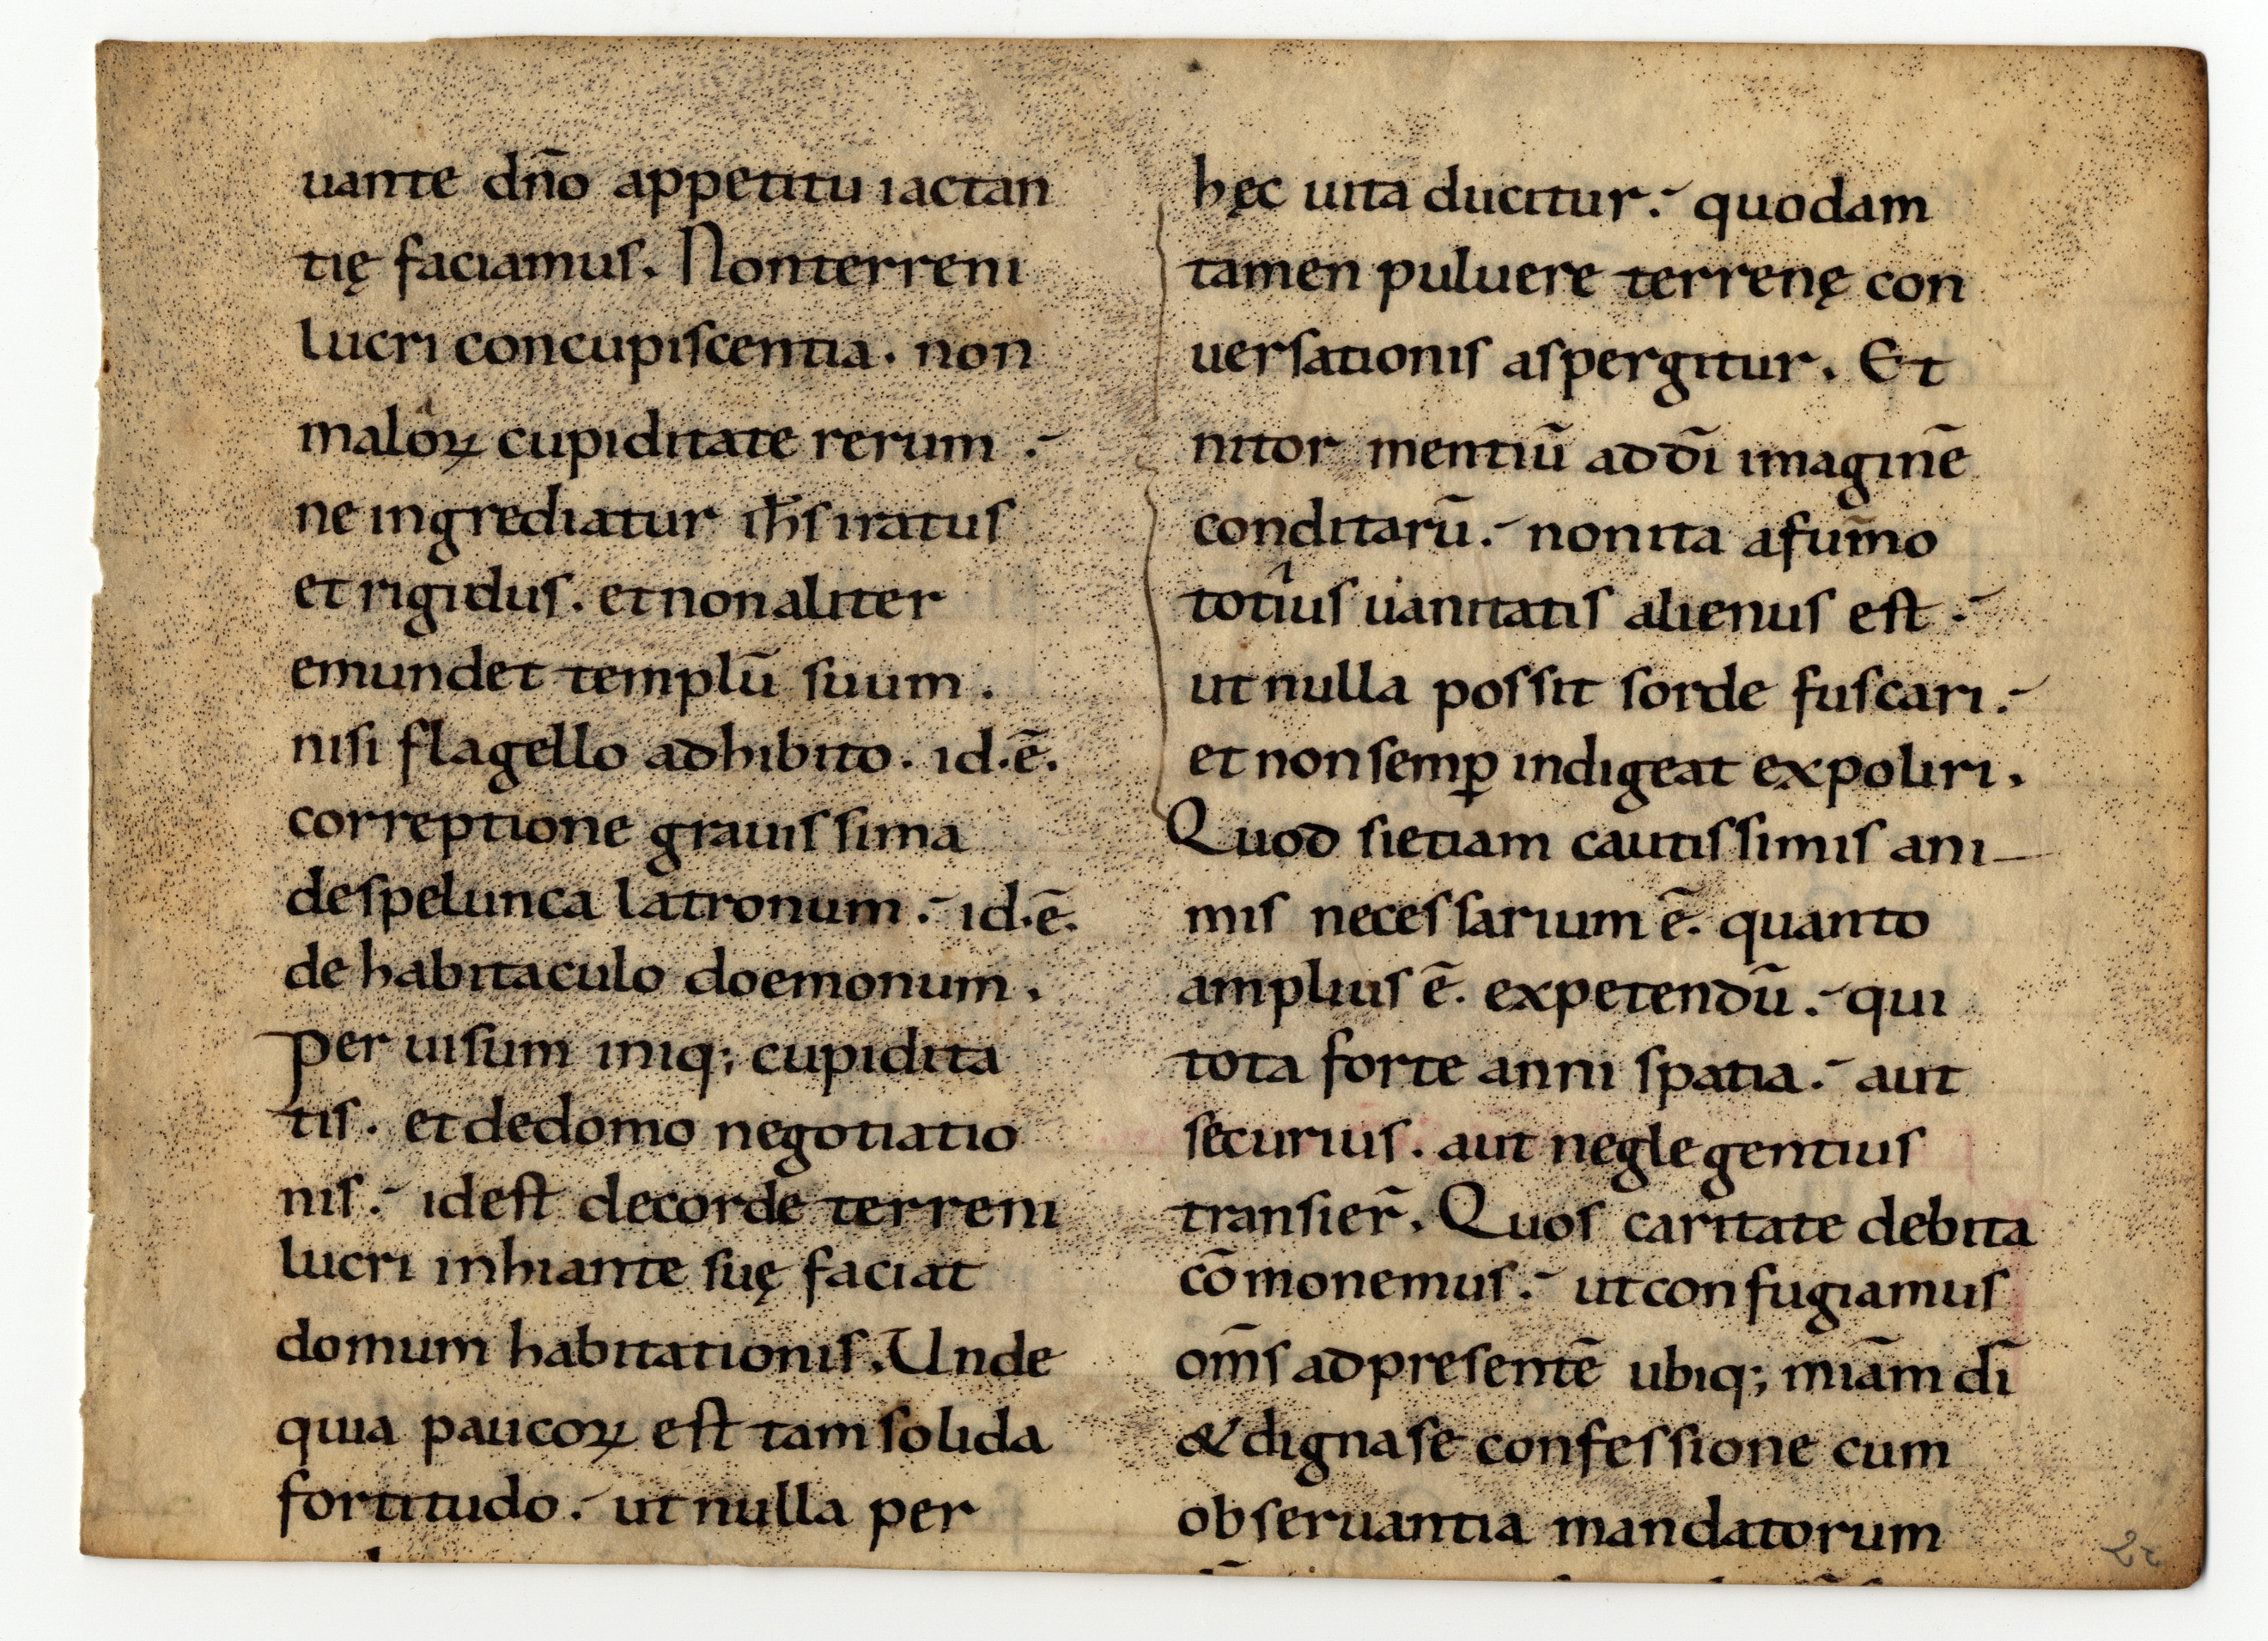 uante dn̄o appetitu iactan
tię faciamus. Nonterreni
lucri concupiscentia. non
maloꝝ cupiditate rerum .-
ne ingrediatur ih̄s iratus
et rigidus. et non aliter
emundet templū suum.
nisi flagello adhibito. id.ē.
correptione grauissima
despelunca latronum .- id.ē.
de habitaculo doemonum.
per uisum iniq; cupidita
tis. et dedomo negotiatio
nis .- idest decorde terreni
lucri inhiante suę faciat
domum habitationis. Unde
quia paucoꝝ est tam solida
fortitudo .- ut nulla per
hęc uita ducitur .- quodam
tamen puluere terrenę con
uersationis aspergitur. Et
nitor mentiū ad dī imaginē
conditarū .- non ita afum̄o
totius uanitatis alienus est .-
ut nulla possit sorde fuscari .-
et non semꝑ indigeat expoliri.
Quod si etiam cautissimis ani-
mis necessarium ē. quanto
amplius ē. expetendū .- qui
tota forte anni spatia .- aut
securius. aut neglegentius
transier̄. Quos caritate debita
cōmonemus .- ut confugiamus
om̄s ad presentē ubiq; miām dī
& dignase confessione cum
obseruantia mandatorum